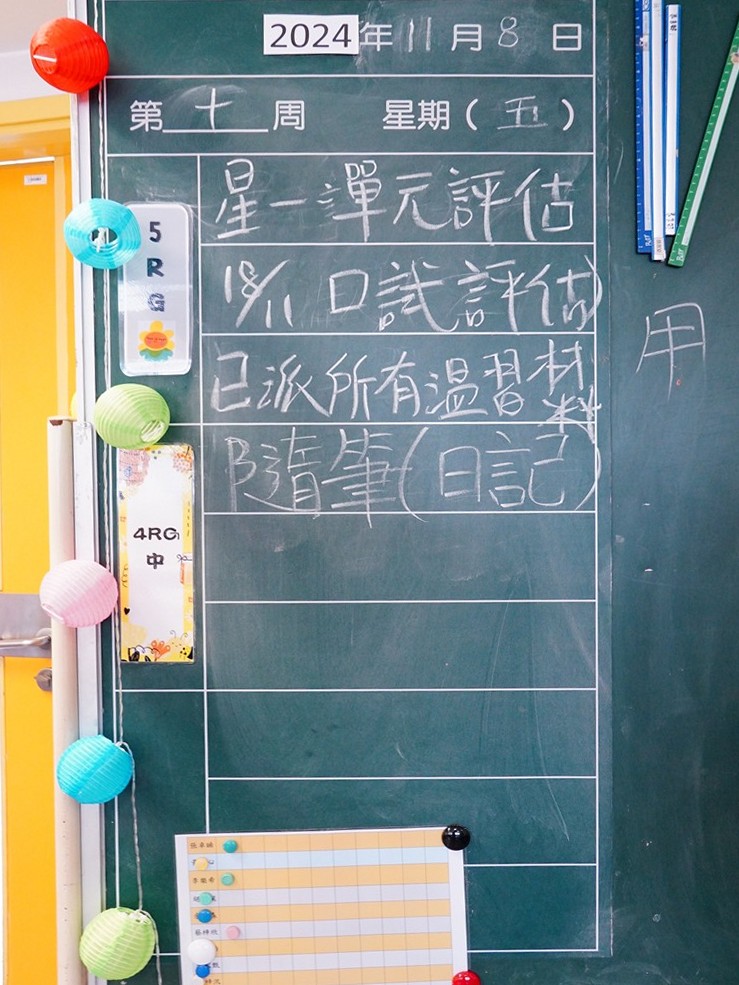 2024年11月8日
第十周 星期（五）
星一單元評估
18/11 口試評估)
已派所有溫習材料
隨筆(日記)
用
5
R
G
4RG
中